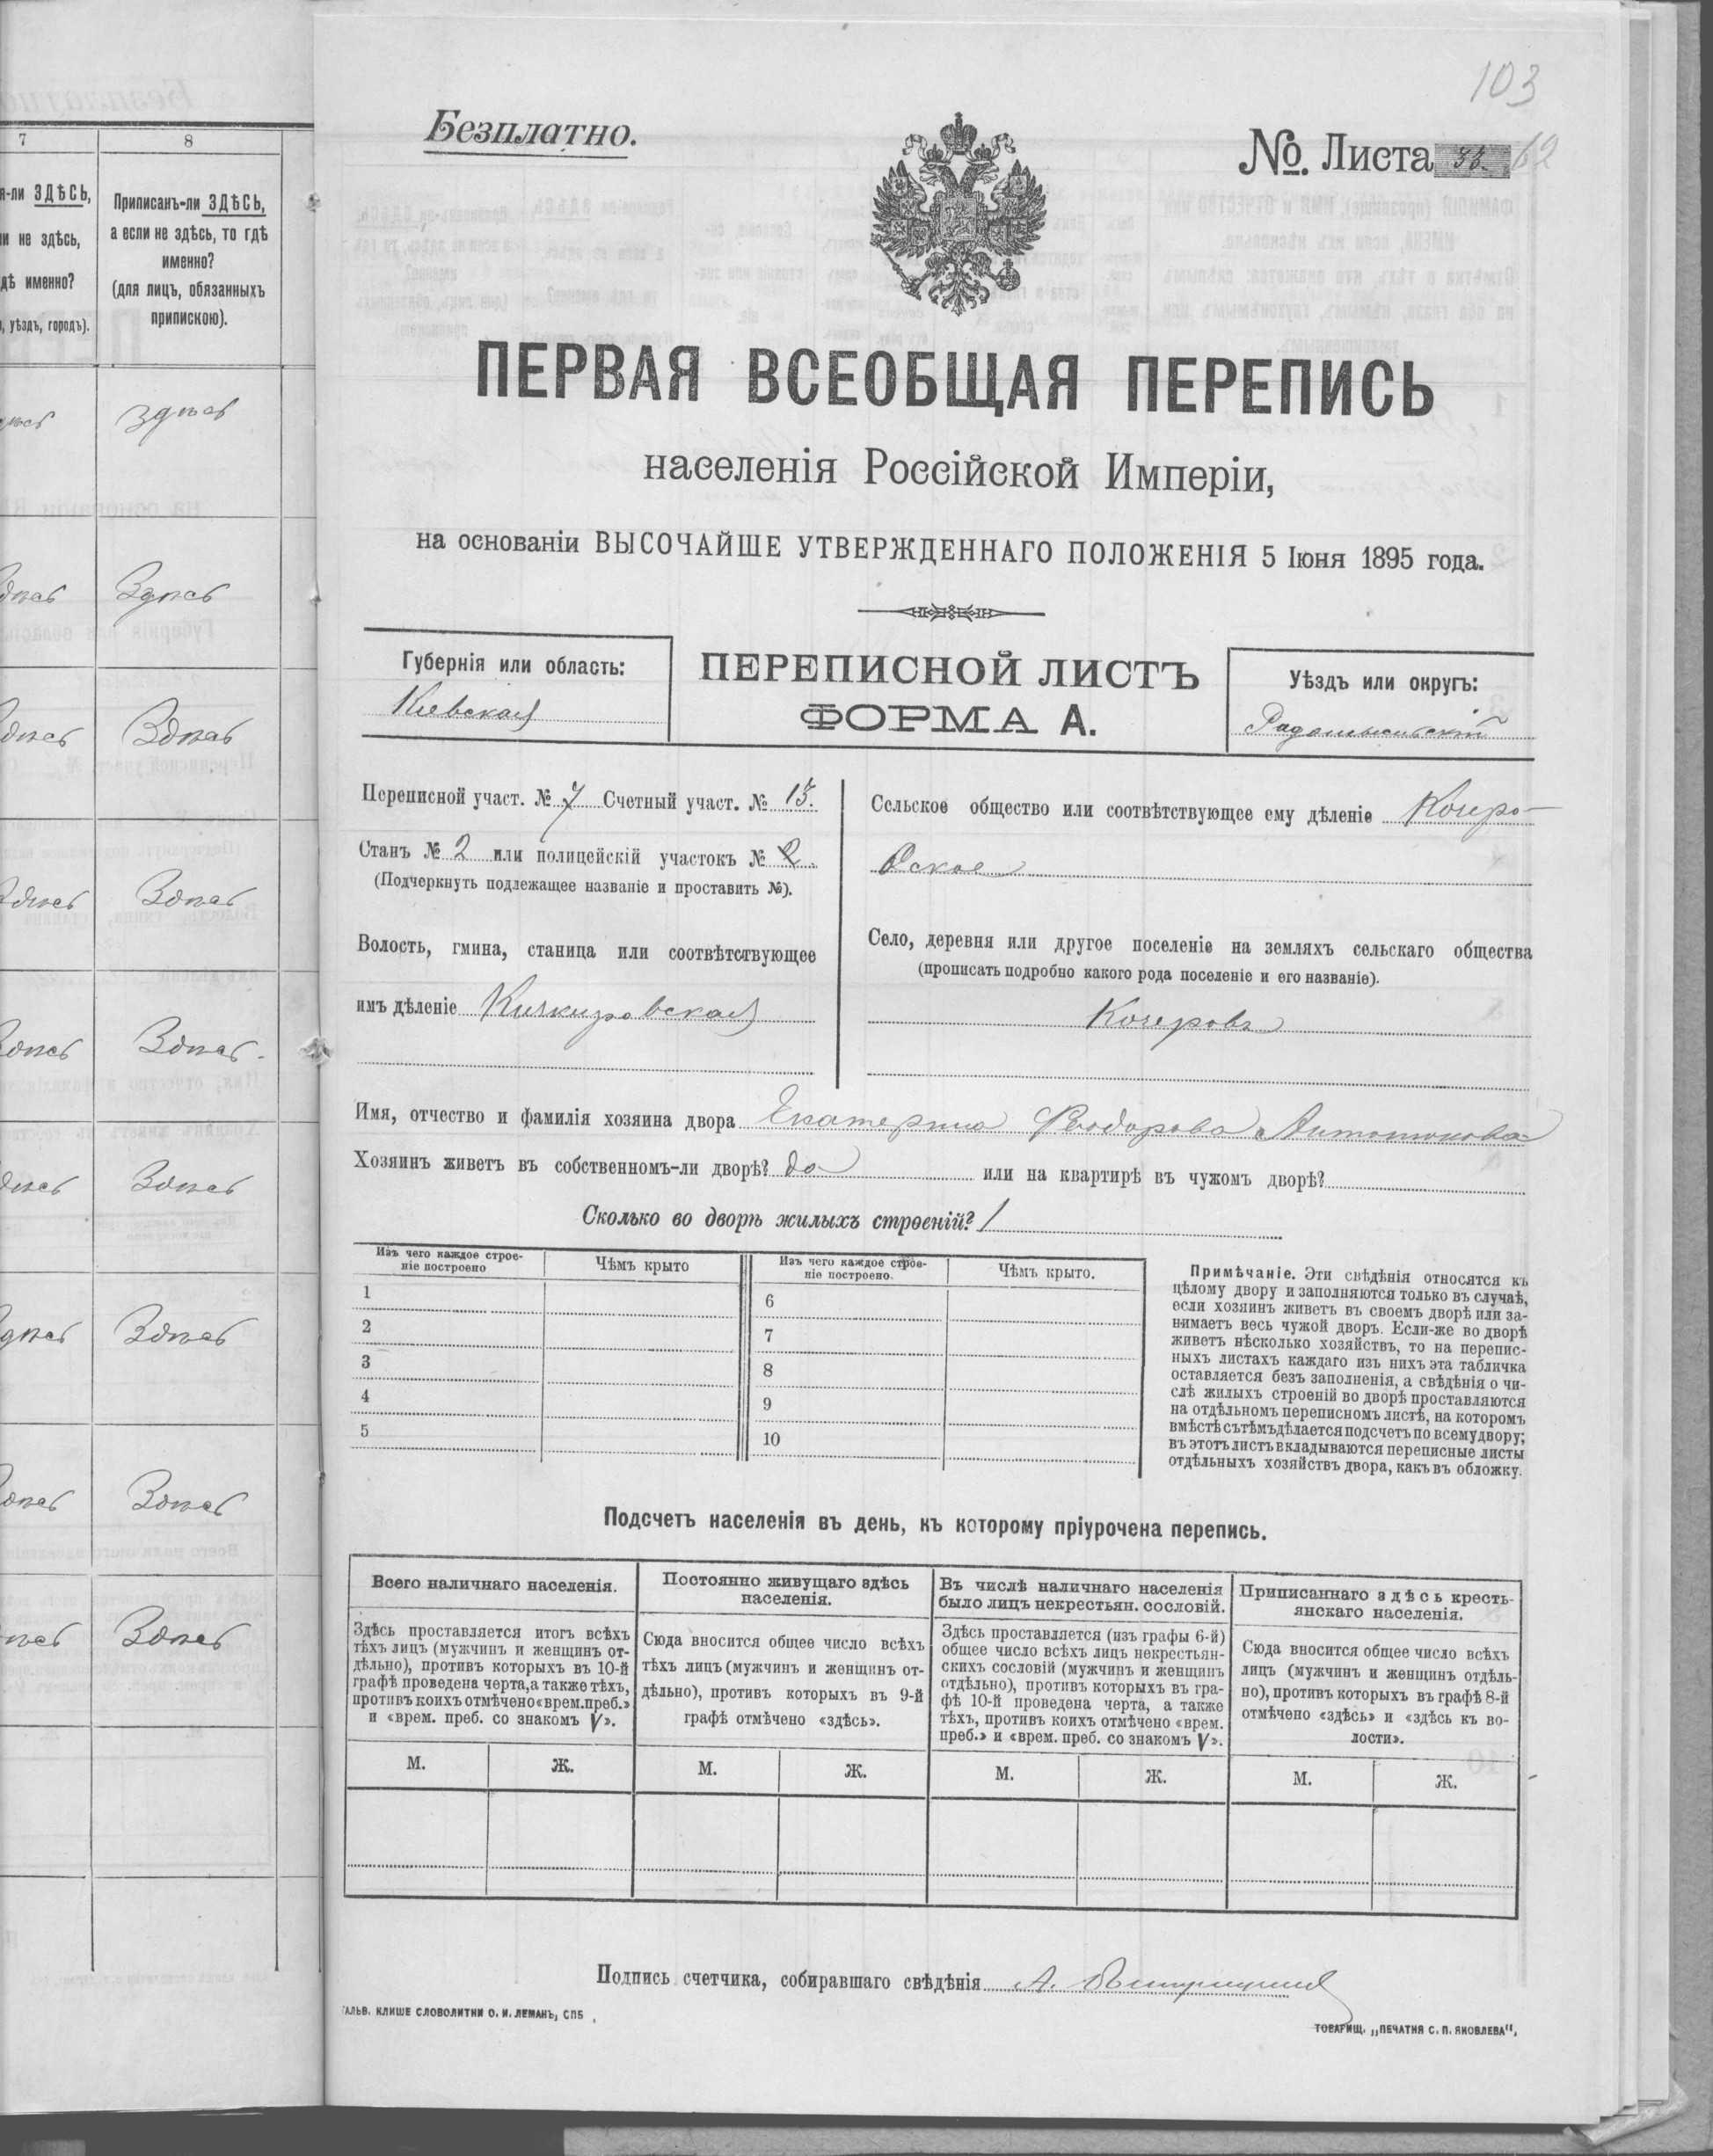 7
8
я-ли ЗДѢСЬ,
и не здѣсь,
дѣ именно?
, уѣздъ, городъ).
Приписанъ-ли ЗДѢСЬ,
а если не здѣсь, то гдѣ
именно?
(для лицъ, обязанныхъ
припискою).
здѣсь
Здѣсь
Здѣсь
Здѣсь
Здѣсь
Здѣсь
Здѣсь
Здѣсь
Здѣсь
103
Безплатно.
№. Листа 62
ПЕРВАЯ ВСЕОБЩАЯ ПЕРЕПИСЬ
населенія Россійской Имперіи,
на основаніи ВЫСОЧАЙШЕ УТВЕРЖДЕННАГО ПОЛОЖЕНІЯ 5 Іюня 1895 года.
Губернія или область:
Кіевская
ПЕРЕПИСНОЙ ЛИСТЪ
ФОРМА А.
Уѣздъ или округъ:
Радомысльскій
Переписной участ. № 7 Счетный участ. № 15.
Станъ № 2 или полицейскій участокъ № 2.
(Подчеркнуть подлежащее названіе и проставить №).
Волость, гмина, станица или соотвѣтствующее
имъ дѣленіе Кичкировская
Сельское общество или соотвѣтствующее ему дѣленіе Кочеро-
вское
Село, деревня или другое поселеніе на земляхъ сельскаго общества
(прописать подробно какого рода поселеніе и его названіе).
Кочеровъ
Имя, отчество и фамилія хозяина двора Екатерина Феодорова Антонюкова
Хозяинъ живетъ въ собственномъ-ли дворѣ? да или на квартирѣ въ чужомъ дворѣ?
Сколько во дворѣ жилыхъ строеній? 1
Изъ чего каждое строе-
ніе построено
Чѣмъ крыто
Изъ чего каждое строе-
ніе построено.
Чѣмъ крыто.
1
2
3
4
5
6
7
8
9
10
Примѣчаніе. Эти свѣдѣнія относятся къ
цѣлому двору и заполняются только въ случаѣ,
если хозяинъ живетъ въ своемъ дворѣ или за-
нимаетъ весь чужой дворъ. Если-же во дворѣ
живетъ нѣсколько хозяйствъ, то на перепис-
ныхъ листахъ каждаго изъ нихъ эта табличка
оставляется безъ заполненія, а свѣдѣнія о чи-
слѣ жилыхъ строеній во дворѣ проставляются
на отдѣльномъ переписномъ листѣ, на которомъ
вмѣстѣ съ тѣмъ дѣлается подсчетъ по всему двору;
въ этотъ листъ вкладываются переписные листы
отдѣльныхъ хозяйствъ двора, какъ въ обложку.
Подсчетъ населенія въ день, къ которому пріурочена перепись.
Всего наличнаго населенія.
Здѣсь проставляется итогъ всѣхъ
тѣхъ лицъ (мужчинъ и женщинъ от-
дѣльно), противъ которыхъ въ 10-й
графѣ проведена черта, а также тѣхъ,
противъ коихъ отмѣчено «врем. преб.»
и «врем. преб. со знакомъ V».
Постоянно живущаго здѣсь
населенія.
Сюда вносится общее число всѣхъ
тѣхъ лицъ (мужчинъ и женщинъ от-
дѣльно), противъ которыхъ въ 9-й
графѣ отмѣчено «здѣсь».
Въ числѣ наличнаго населенія
было лицъ некрестьян. сословій.
Здѣсь проставляется (изъ графы 6-й)
общее число всѣхъ лицъ некрестьян-
скихъ сословій (мужчинъ и женщинъ
отдѣльно), противъ которыхъ въ гра-
фѣ 10-й проведена черта, а также
тѣхъ, противъ коихъ отмѣчено «врем.
преб.» и «врем. преб. со знакомъ V».
Приписаннаго здѣсь кресть-
янскаго населенія.
Сюда вносится общее число всѣхъ
лицъ (мужчинъ и женщинъ отдѣль-
но), противъ которыхъ въ графѣ 8-й
отмѣчено «здѣсь» и «здѣсь къ во-
лости».
М. Ж. М. Ж. М. Ж. М. Ж.
Подпись счетчика, собиравшаго свѣдѣнія А.
ГАЛЬВ. КЛИШЕ СЛОВОЛИТНИ О. И. ЛЕМАНЪ, СПБ
ТОВАРИЩ. „ПЕЧАТНЯ С. П. ЯКОВЛЕВА“.